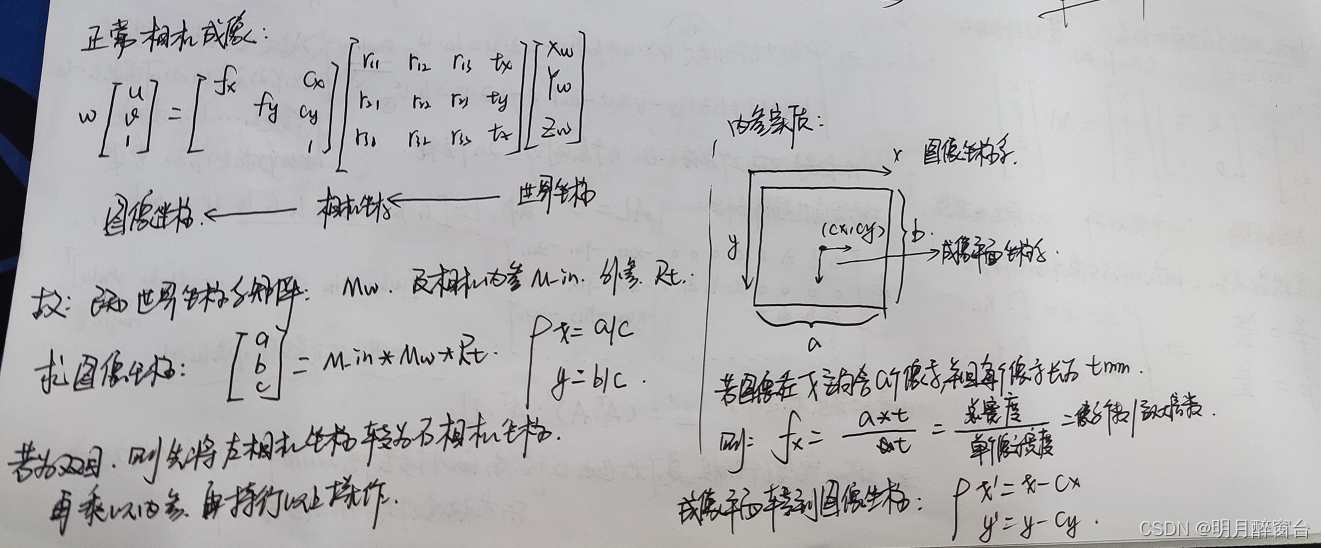 正常相机成像:
w [u v 1] = [fx cx fy cy 1] [r11 r12 r13 tx r21 r22 r23 ty r31 r32 r33 tz] [Xw Yw Zw]
图像坐标 ← 相机坐标 ← 世界坐标
故: 已知世界坐标系矩阵: Mw. 及相机内参 M_in. 外参. Rt.
求图像坐标: [a b c] = M_in * Mw * Rt. { x = a/c
y = b/c.
若为双目. 则先将左相机坐标转为右相机坐标.
再乘以内参. 再执行以上操作.
内参实质:
x 图像坐标系.
y
(cx, cy)
b.
成像平面坐标系.
a
若图像在 X 方向含 a 个像素, 并且每个像素长为 t mm.
则: fx = a×t / t = 总宽度 / 单个像素宽度 =
成像平面转到图像坐标: { x' = x - cx
y' = y - cy.
CSDN @明月醉窗台